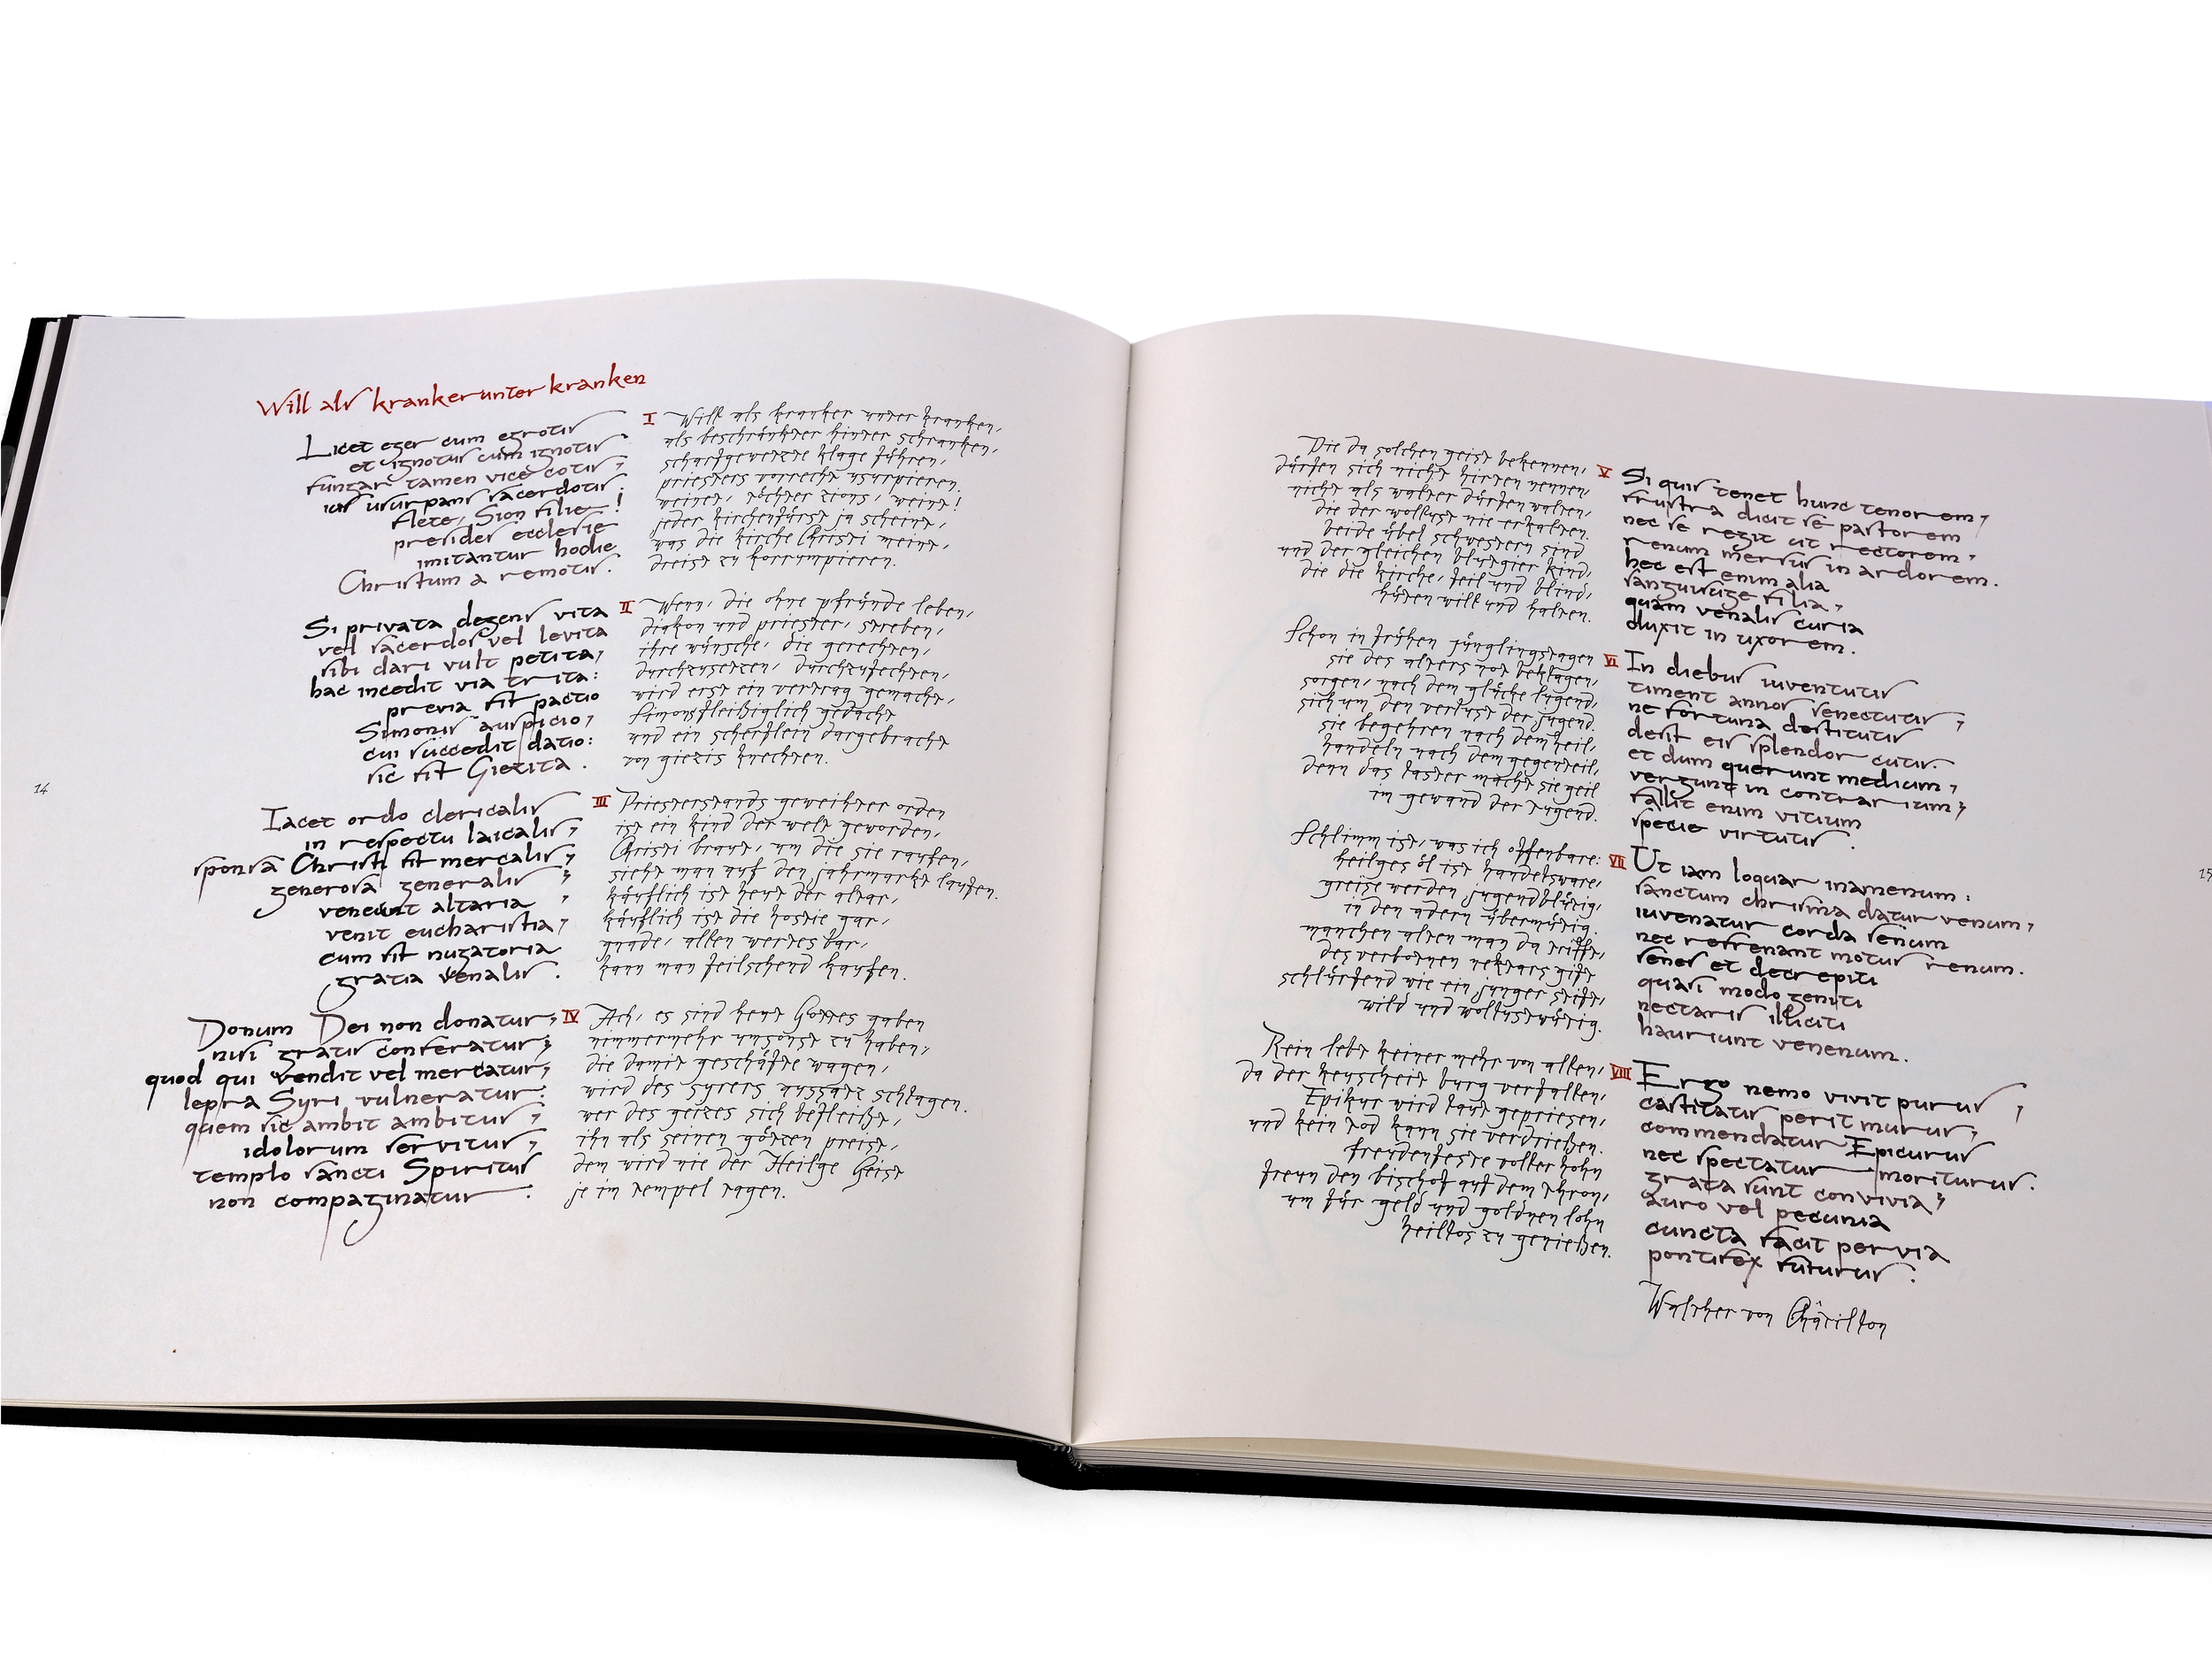 Will als kranker unter kranken
Licet eger cum egrotis
et ignotus cum ignotis
fungar tamen vice cotis,
ius usurpans sacerdotis.
flete, Sion filie!
presides ecclesie
imitantur hodie
Christum a remotis.
I
Will als kranker unter kranken,
als beschränkter hinter schranken,
scharfgewetzte klage führen,
priesters vorrecht usurpieren.
weinet, töchter zions, weint!
jeder kirchenfürst ja scheint,
was die kirche Christi meint,
dreist zu korrumpieren.
Si privata degens vita
vel sacerdos vel levita
sibi dari vult petita,
hac incedit via trita:
previa fit pactio
Simonis auspicio,
cui succedit datio:
sic fit Giezita.
II
Wenn, die ohne pfründe leben,
diakon und priester, streben,
ihre wünsche, die gerechten,
durchzusetzen, durchzufechten,
wird erst ein vertrag gemacht,
Simonsfleißiglich gedacht
und ein scherflein dargebracht
von giezis knechten.
Iacet ordo clericalis
in respectu laicalis,
sponsa Christi fit mercalis,
generosa generalis;
veneunt altaria,
venit eucharistia,
cum sit nugatoria
gratia venalis.
III
Priesterstands geweihter orden
ist ein kind der welt geworden,
Christi braut, um die sie raufen,
sieht man auf den jahrmarkt laufen.
käuflich ist heut der altar,
käuflich ist die hostie gar,
gnade, allen wertes bar,
kann man feilschend kaufen.
Donum Dei non donatur,
nisi gratis conferatur;
quod qui vendit vel mercatur,
lepra Syri vulneratur:
quem sic ambit ambitus,
idolorum servitus,
templo sancti Spiritus
non compaginatur.
IV
Ach, es sind heut Gottes gaben
nimmermehr umsonst zu haben;
die damit geschäfte wagen,
wird des syrers aussatz schlagen.
wer des geizes sich befleißt,
ihn als seinen götzen preist,
dem wird nie der Heilge Geist
je im tempel ragen.
14
Die da solchen geist bekennen,
dürfen sich nicht hirten nennen,
nicht als walter dürfen walten,
die der wollust nie erkalten.
beide übel schwestern sind
und der gleichen blutgier kind,
die die kirche, feil und blind,
huren will und halten.
V
Si quis tenet hunc tenorem,
frustra dicit se pastorem
nec se regit ut rectorem,
renum mersus in ardorem.
hec est enim alia
sanguisuge filia,
quam venalis curia
duxit in uxorem.
Schon in frühen jünglingstagen
sie des alters not beklagen,
sorgen, nach dem glücke lugend,
sich um den verlust der jugend.
sie begehren nach dem heil,
handeln nach dem gegenteil,
denn das laster macht sie geil
im gewand der tugend.
VI
In diebus iuventutis
timent annos senectutis,
ne fortuna destitutis
desit eis splendor cutis.
et dum querunt medium,
vergunt in contrarium;
fallit enim vitium
specie virtutis.
Schlimm ist, was ich offenbare:
heilges öl ist handelsware,
greise werden jugendblütig,
in den adern übermütig.
manchen alten man da trifft,
des verbotnen nektars gift
schlürfend wie ein junger stift,
wild und wollustwütig.
VII
Ut iam loquar inamenum:
sanctum chrisma datur venum,
iuvenatur corda senum
nec refrenant motus renum.
senes et decrepiti
quasi modo geniti
nectaris illiciti
hauriunt venenum.
Rein lebt keiner mehr von allen,
da der keuscheit burg verfallen,
Epikur wird laut gepriesen,
und kein tod kann sie verdrießen.
freudenfeste voller hohn
freun den bischof auf dem thron,
um für geld und goldnen lohn
heillos zu genießen.
VIII
Ergo nemo vivit purus,
castitatis perit murus,
commendatur Epicurus
nec spectatur moriturus.
grata sunt convivia;
auro vel pecunia
cuncta facit pervia
pontifex futurus.
Walther von Châtillon
15